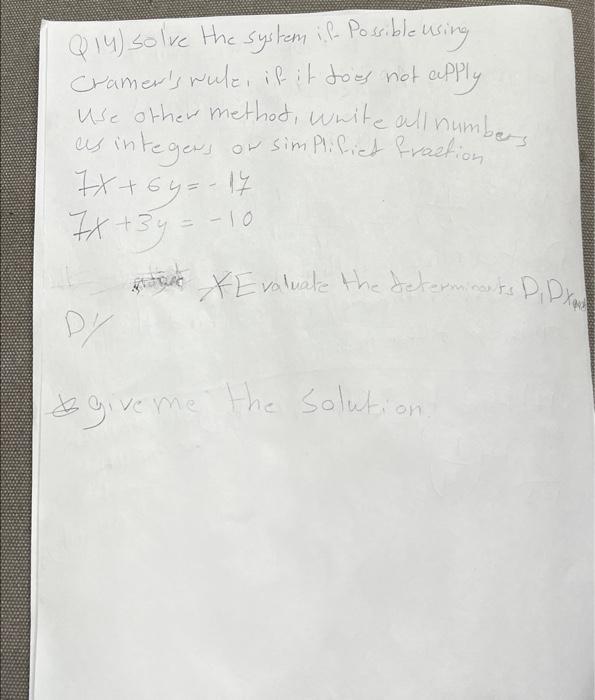 Q 14) solve the system if Possible using
cramer's rule, if it does not apply
use other method, write all numbers
as integers or simplified fraction
7x + 6y = -17
7x + 3y = -10
* Evaluate the determinants D, Dx and
Dy
* give me the solution.